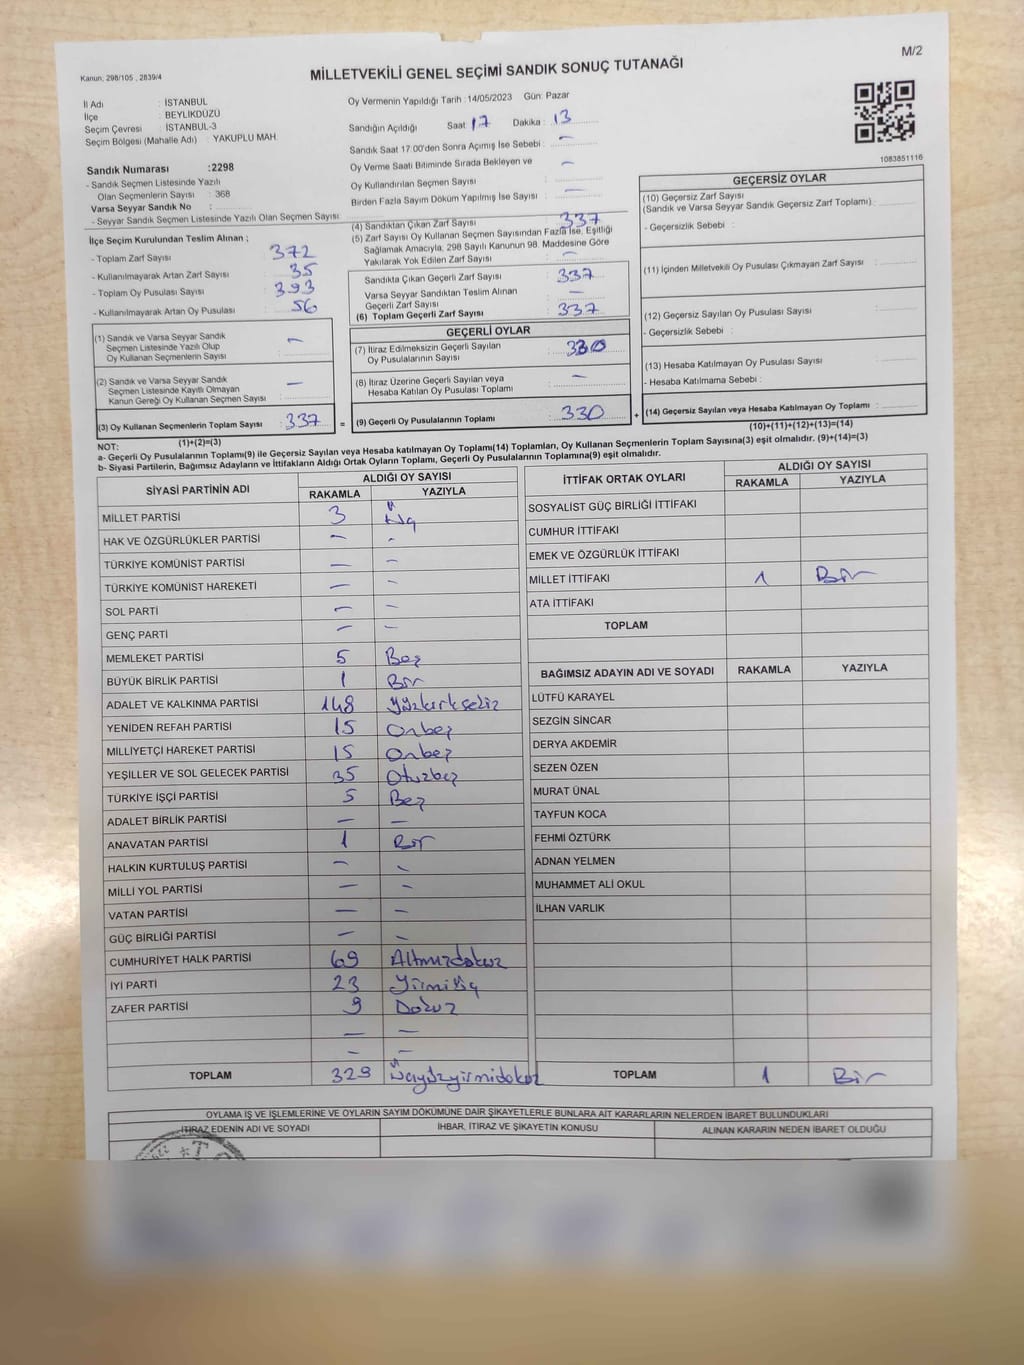 M/2
Kanun; 298/105 , 2839/4
MİLLETVEKİLİ GENEL SEÇİMİ SANDIK SONUÇ TUTANAĞI
İl Adı : İSTANBUL
İlçe : BEYLİKDÜZÜ
Seçim Çevresi : İSTANBUL-3
Seçim Bölgesi (Mahalle Adı) : YAKUPLU MAH.
Sandık Numarası :2298
- Sandık Seçmen Listesinde Yazılı
Olan Seçmenlerin Sayısı : 368
Varsa Seyyar Sandık No :
- Seyyar Sandık Seçmen Listesinde Yazılı Olan Seçmen Sayısı
Oy Vermenin Yapıldığı Tarih :14/05/2023 Gün: Pazar
Sandığın Açıldığı Saat : 17 Dakika : 13
Sandık Saat 17:00'den Sonra Açımış İse Sebebi : —
Oy Verme Saati Bitiminde Sırada Bekleyen ve
Oy Kullandırılan Seçmen Sayısı : —
Birden Fazla Sayım Döküm Yapılmış İse Sayısı : —
1083851116
İlçe Seçim Kurulundan Teslim Alınan ;
- Toplam Zarf Sayısı : 372
- Kullanılmayarak Artan Zarf Sayısı : 35
- Toplam Oy Pusulası Sayısı : 393
- Kullanılmayarak Artan Oy Pusulası : 56
(1) Sandık ve Varsa Seyyar Sandık
Seçmen Listesinde Yazılı Olup
Oy Kullanan Seçmenlerin Sayısı : —
(2) Sandık ve Varsa Seyyar Sandık
Seçmen Listesinde Kayıtlı Olmayan
Kanun Gereği Oy Kullanan Seçmen Sayısı : —
(3) Oy Kullanan Seçmenlerin Toplam Sayısı : 337
(1)+(2)=(3)
(4) Sandıktan Çıkan Zarf Sayısı : 337
(5) Zarf Sayısı Oy Kullanan Seçmen Sayısından Fazla İse, Eşitliği
Sağlamak Amacıyla, 298 Sayılı Kanunun 98. Maddesine Göre
Yakılarak Yok Edilen Zarf Sayısı : —
Sandıkta Çıkan Geçerli Zarf Sayısı : 337
Varsa Seyyar Sandıktan Teslim Alınan
Geçerli Zarf Sayısı : —
(6) Toplam Geçerli Zarf Sayısı : 337
GEÇERLİ OYLAR
(7) İtiraz Edilmeksizin Geçerli Sayılan
Oy Pusulalarının Sayısı : 330
(8) İtiraz Üzerine Geçerli Sayılan veya
Hesaba Katılan Oy Pusulası Toplamı : —
= (9) Geçerli Oy Pusulalarının Toplamı : 330 +
GEÇERSİZ OYLAR
(10) Geçersiz Zarf Sayısı
(Sandık ve Varsa Seyyar Sandık Geçersiz Zarf Toplamı) :
- Geçersizlik Sebebi :
(11) İçinden Milletvekili Oy Pusulası Çıkmayan Zarf Sayısı :
(12) Geçersiz Sayılan Oy Pusulası Sayısı :
- Geçersizlik Sebebi :
(13) Hesaba Katılmayan Oy Pusulası Sayısı :
- Hesaba Katılmama Sebebi :
(14) Geçersiz Sayılan veya Hesaba Katılmayan Oy Toplamı :
(10)+(11)+(12)+(13)=(14)
NOT:
a- Geçerli Oy Pusulalarının Toplamı(9) ile Geçersiz Sayılan veya Hesaba katılmayan Oy Toplamı(14) Toplamları, Oy Kullanan Seçmenlerin Toplam Sayısına(3) eşit olmalıdır. (9)+(14)=(3)
b- Siyasi Partilerin, Bağımsız Adayların ve İttifakların Aldığı Ortak Oyların Toplamı, Geçerli Oy Pusulalarının Toplamına(9) eşit olmalıdır.
SİYASİ PARTİNİN ADI ALDIĞI OY SAYISI
RAKAMLA YAZIYLA
MİLLET PARTİSİ 3 Üç
HAK VE ÖZGÜRLÜKLER PARTİSİ — -
TÜRKİYE KOMÜNİST PARTİSİ — —
TÜRKİYE KOMÜNİST HAREKETİ — —
SOL PARTİ — —
GENÇ PARTİ — —
MEMLEKET PARTİSİ 5 Beş
BÜYÜK BİRLİK PARTİSİ 1 Bir
ADALET VE KALKINMA PARTİSİ 148 Yüzkırksekiz
YENİDEN REFAH PARTİSİ 15 Onbeş
MİLLİYETÇİ HAREKET PARTİSİ 15 Onbeş
YEŞİLLER VE SOL GELECEK PARTİSİ 35 Otuzbeş
TÜRKİYE İŞÇİ PARTİSİ 5 Beş
ADALET BİRLİK PARTİSİ — —
ANAVATAN PARTİSİ 1 Bir
HALKIN KURTULUŞ PARTİSİ — —
MİLLİ YOL PARTİSİ — —
VATAN PARTİSİ — —
GÜÇ BİRLİĞİ PARTİSİ — —
CUMHURİYET HALK PARTİSİ 69 Altmışdokuz
İYİ PARTİ 23 Yirmiüç
ZAFER PARTİSİ 9 Dokuz
— —
— —
TOPLAM 329 Üçyüzyirmidokuz
İTTİFAK ORTAK OYLARI ALDIĞI OY SAYISI
RAKAMLA YAZIYLA
SOSYALİST GÜÇ BİRLİĞİ İTTİFAKI
CUMHUR İTTİFAKI
EMEK VE ÖZGÜRLÜK İTTİFAKI
MİLLET İTTİFAKI 1 Bir
ATA İTTİFAKI
TOPLAM
BAĞIMSIZ ADAYIN ADI VE SOYADI RAKAMLA YAZIYLA
LÜTFÜ KARAYEL
SEZGİN SİNCAR
DERYA AKDEMİR
SEZEN ÖZEN
MURAT ÜNAL
TAYFUN KOCA
FEHMİ ÖZTÜRK
ADNAN YELMEN
MUHAMMET ALİ OKUL
İLHAN VARLIK
TOPLAM 1 Bir
OYLAMA İŞ VE İŞLEMLERİNE VE OYLARIN SAYIM DÖKÜMÜNE DAİR ŞİKAYETLERLE BUNLARA AİT KARARLARIN NELERDEN İBARET BULUNDUKLARI
İTİRAZ EDENİN ADI VE SOYADI İHBAR, İTİRAZ VE ŞİKAYETİN KONUSU ALINAN KARARIN NEDEN İBARET OLDUĞU